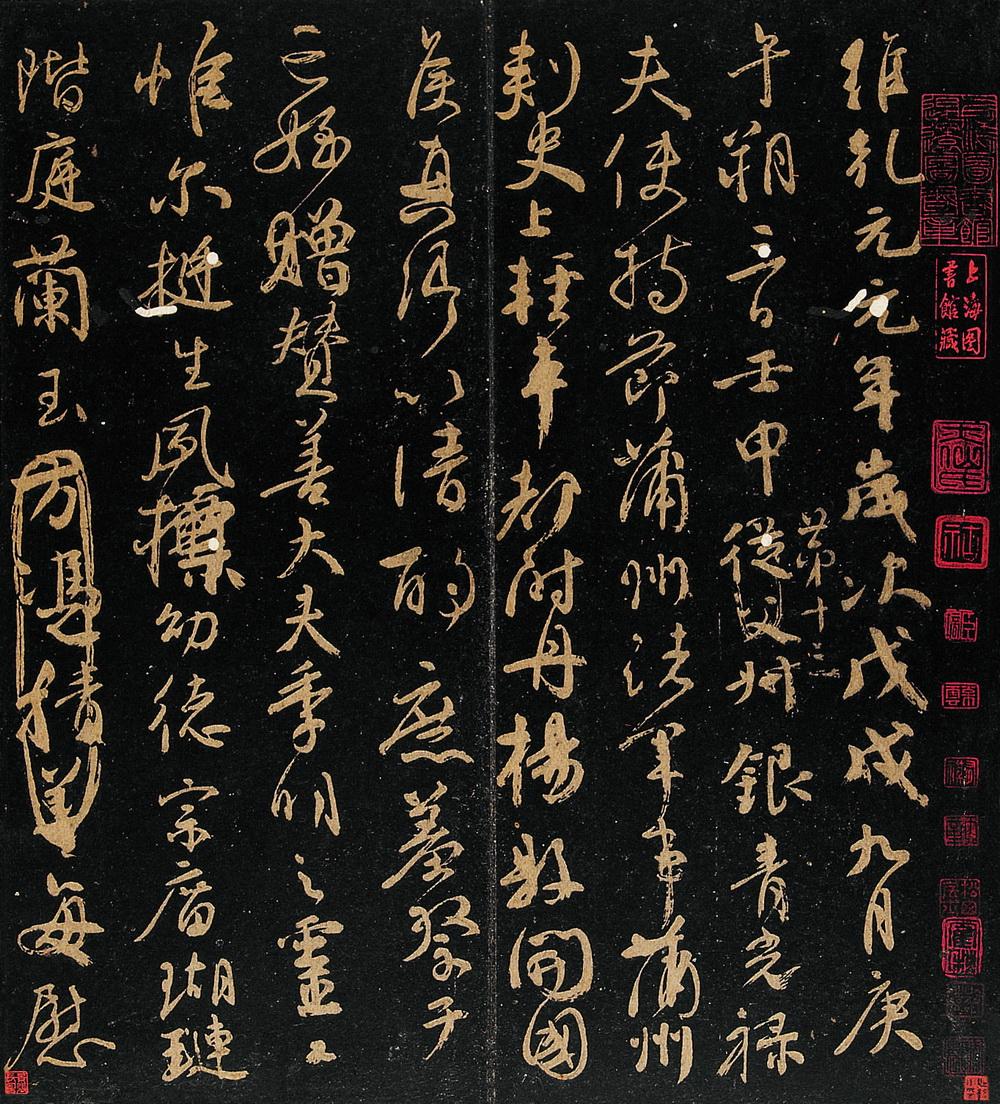 維乾元元年歲次戊戌九月庚
午朔三日壬申從父叔銀青光祿
第十三
夫使持節蒲州諸軍事蒲州
刺史上輕車都尉丹楊縣開國
侯真卿以清酌庶羞祭于
亡姪贈贊善大夫季明之靈曰
惟尔挺生夙標幼德宗廟瑚璉
階庭蘭玉方憑積善每慰
上海图
書館藏